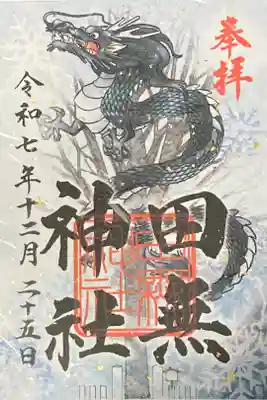 奉拝
田無
神社
令和七年十二月二十五日